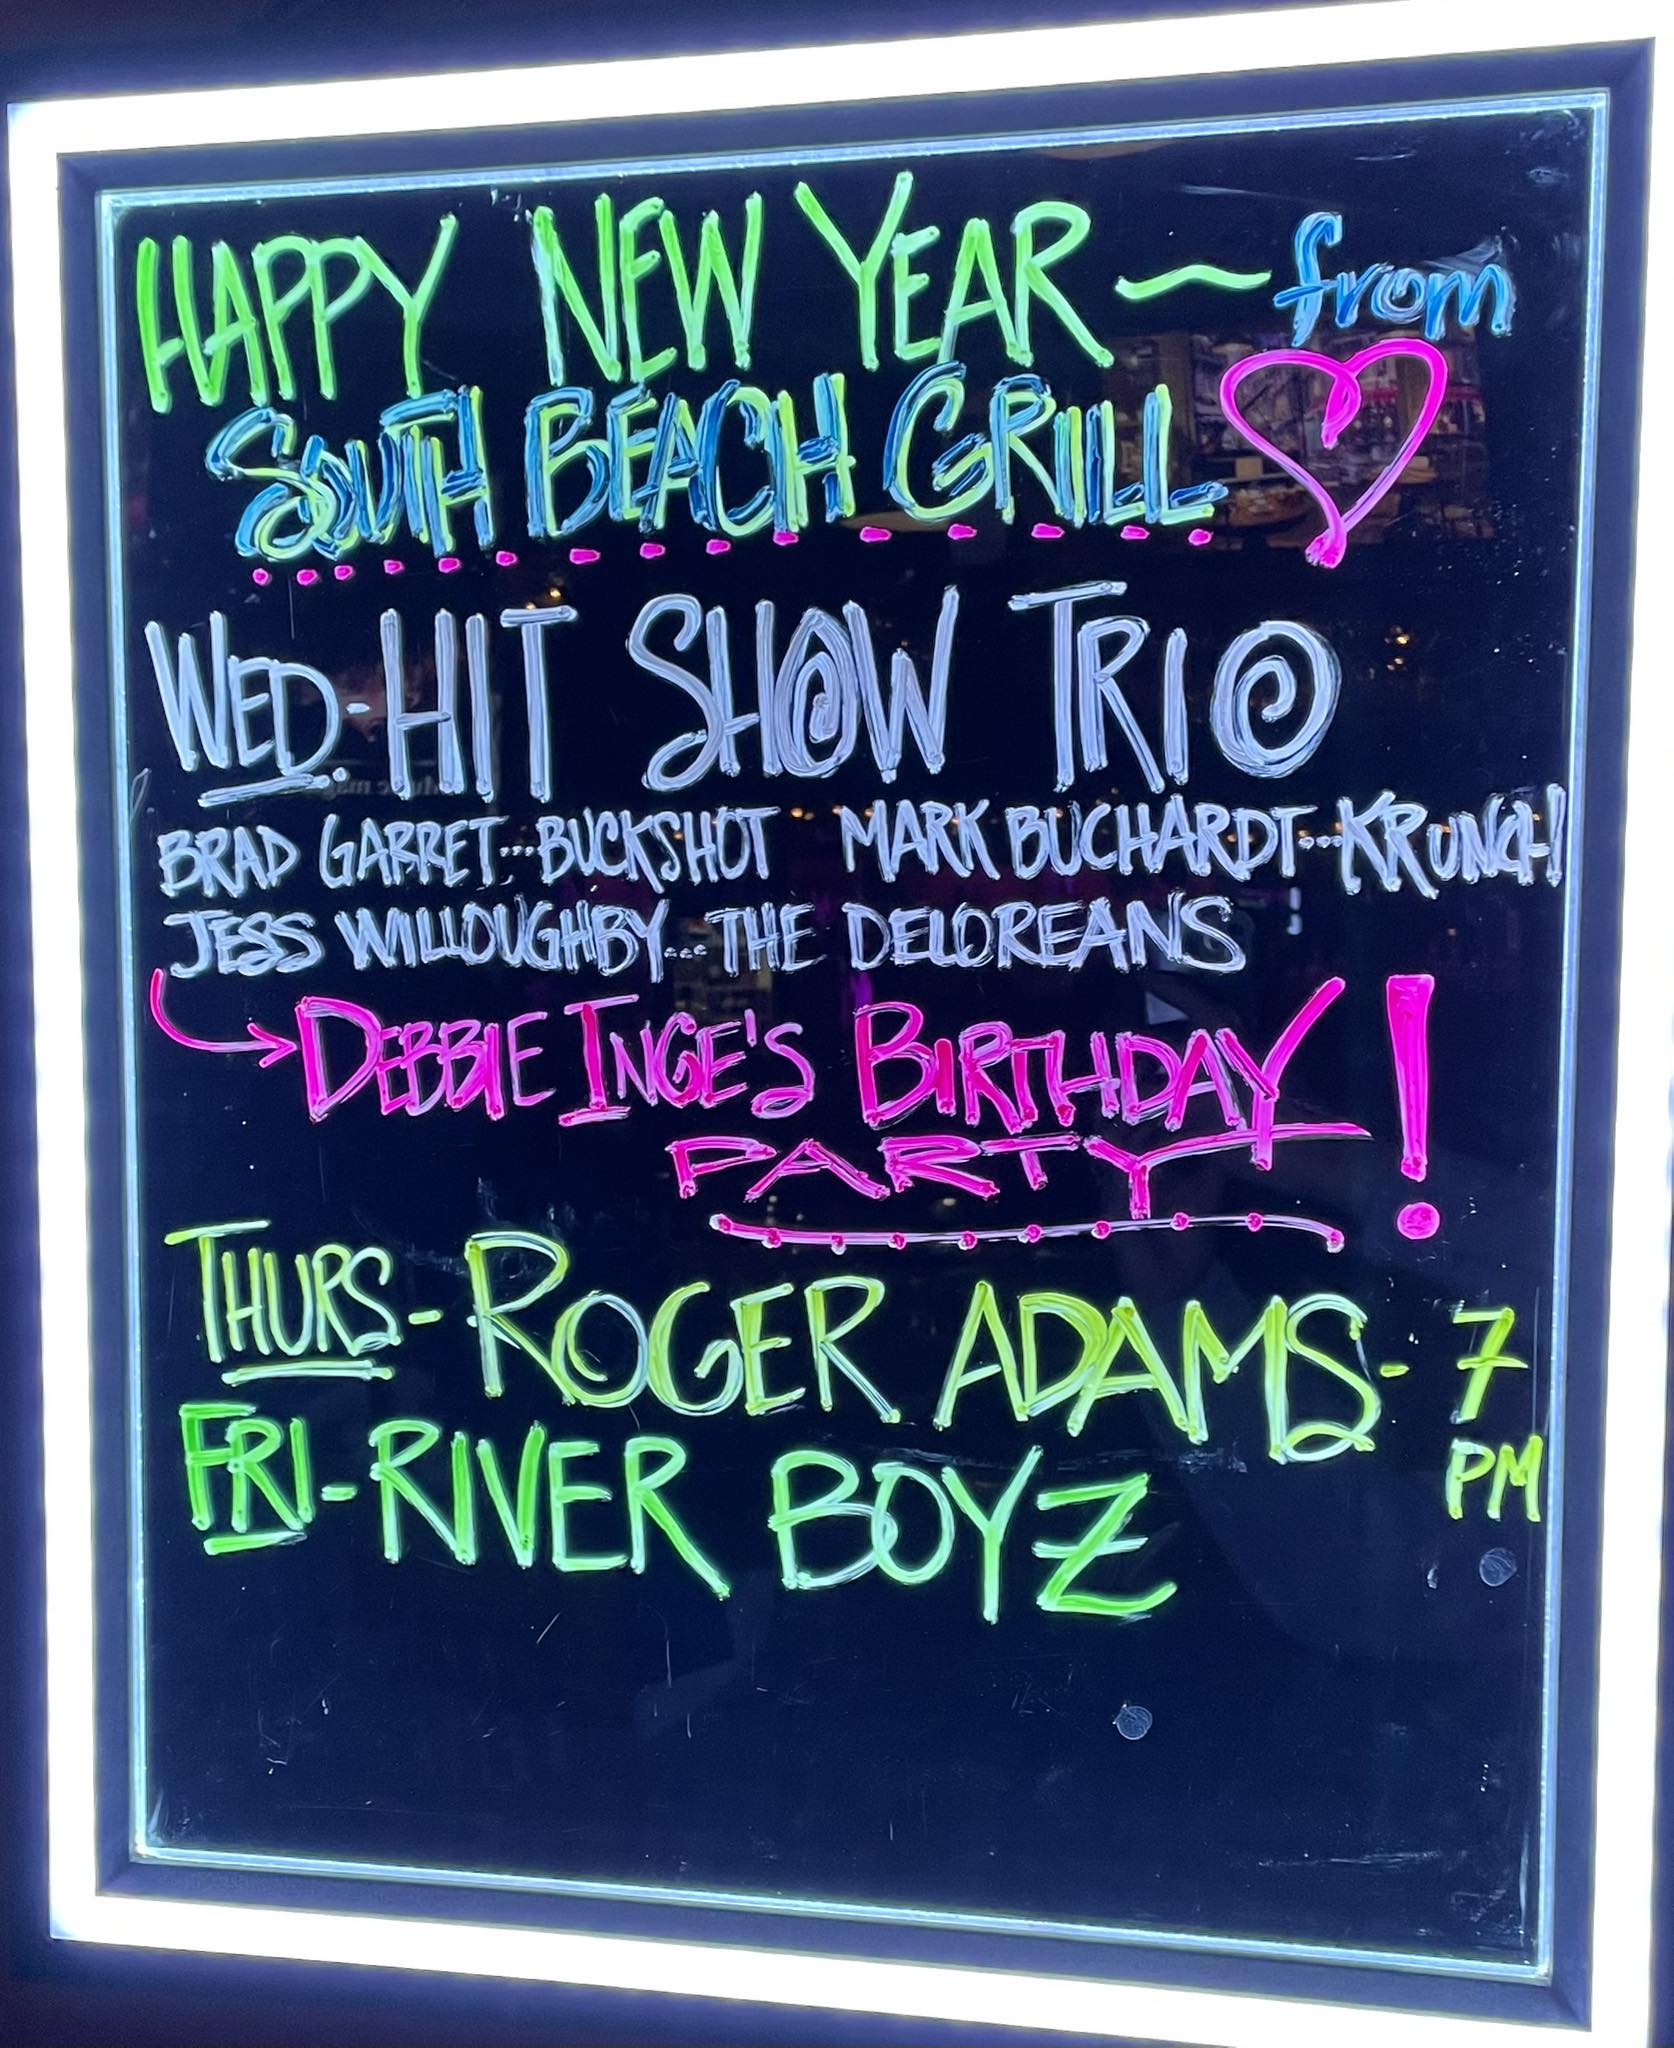 HAPPY NEW YEAR ~ from
SOUTH BEACH GRILL
WED.-HIT SHOW TRIO
BRAD GARRET...BUCKSHOT MARK BUCHARDT...KRUNCH
JESS WILLOUGHBY...THE DELOREANS
DEBBIE INGE'S BIRTHDAY!
PARTY
THURS-ROGER ADAMS-7
PM
FRI-RIVER BOYZ